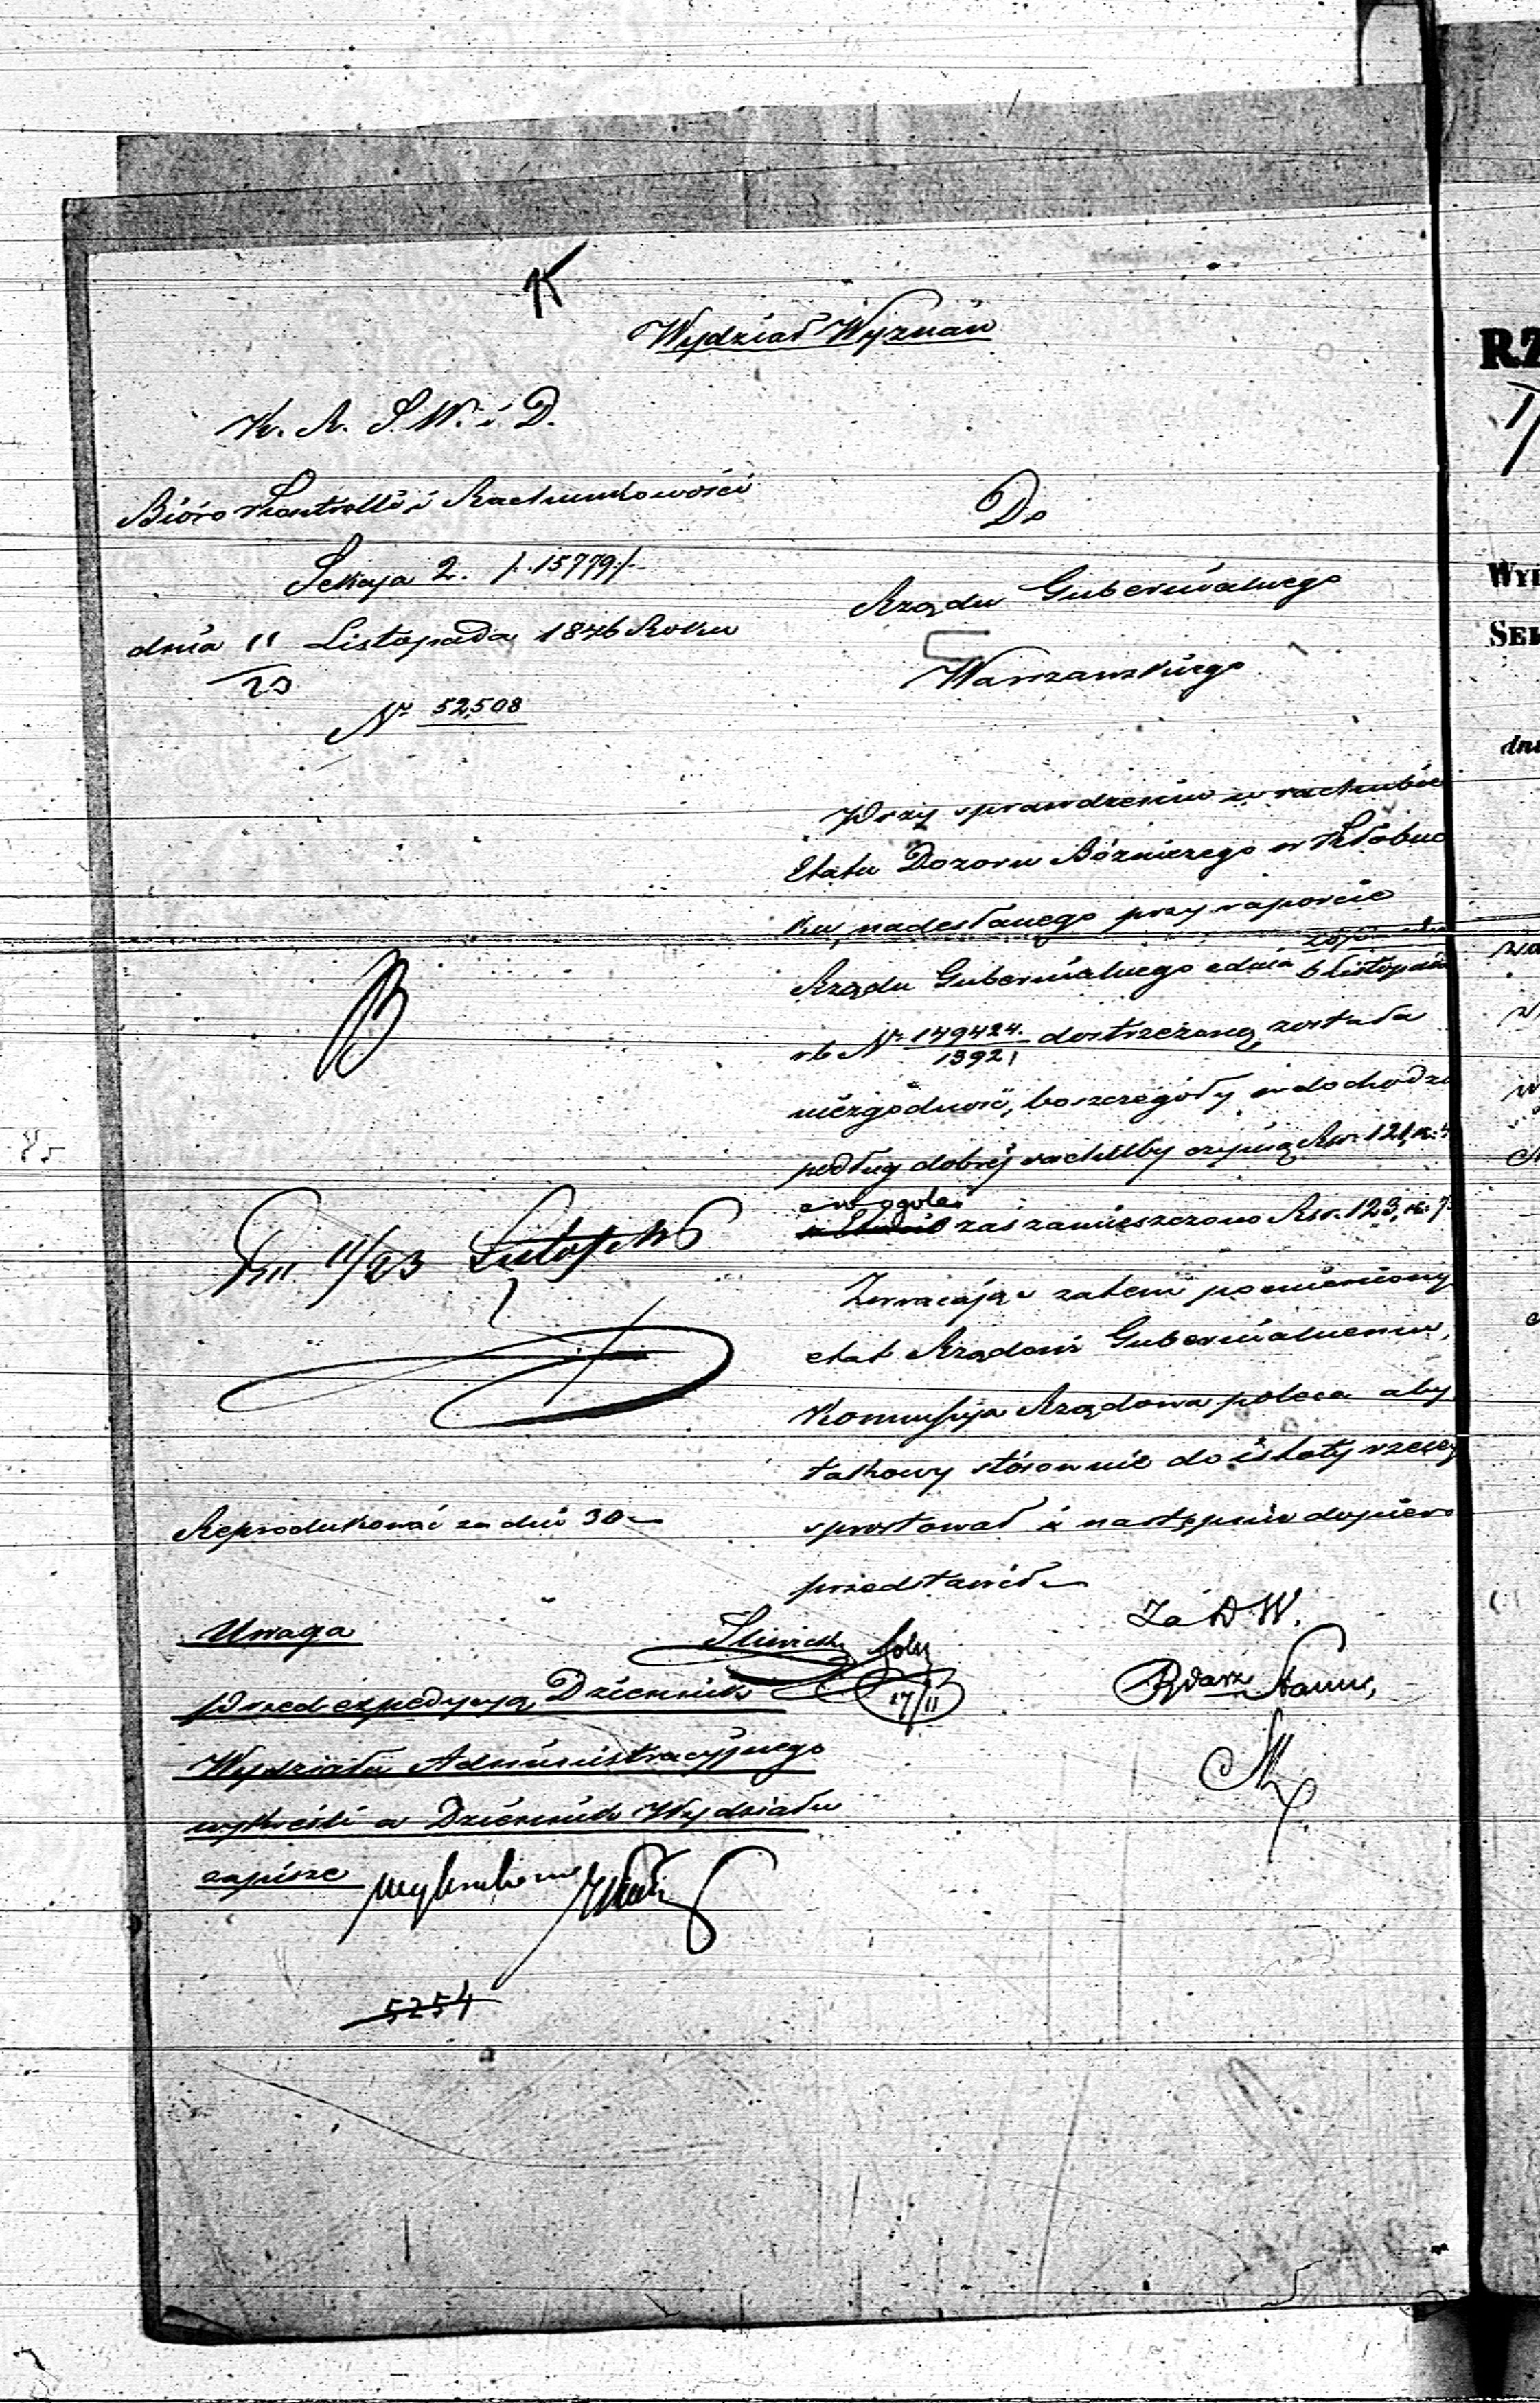 Wydział Wyznań
K. R. S. W. i D.
Bióro Kontrolli i Rachunkowości
Sekcya 2. /:15779:/
dnia 11 Listopada 1846 Roku
23
Nr 52,508
Do
Rządu Gubernialnego
Warszawskiego
Przy sprawdzeniu w rachubie
Etatu Dozoru Bóżniczego w Kłobuc
ku, nadesłanego przy raporcie
Rządu Gubernialnego z dnia
6 Listopada
rb Nr 149424. dostrzeżoną została
13921
niezgodność, bo szczegóły w dochodzie
podług dobrej rachuby czynią Rsr. 121, k.
a w ogóle
zaś zamieszczono Rsr. 123, k. 7
Zwracając zatem pomieniony
etat Rządowi Gubernialnemu,
Kommissya Rządowa poleca aby
takowy stósownie do istoty rzeczy
sprostował i następnie dopiero
przedstawił
11/23
Reprodukować za dni 30
Uwaga
Przed expedycyą Dziennik
Wydziału Administracyjnego
wykreśli a Dziennik Wydziału
zapisze
Za D W.
17/11
5254
RZ
WYD
SEK
dni